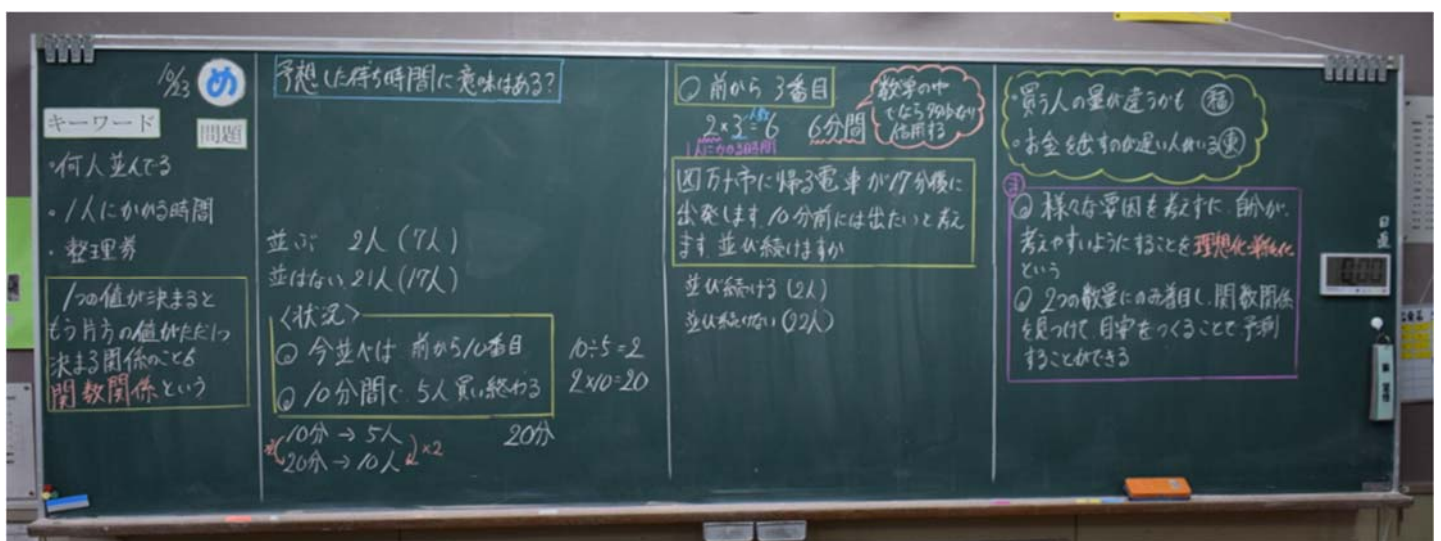 10/23
め
キーワード
問題
・何人並んでる
・1人にかかる時間
・整理券
1つの値が決まると
もう片方の値がただ1つ
決まる関係のことを
関数関係という
予想した待ち時間に意味はある?
並ぶ 2人(7人)
並ばない 21人(17人)
〈状況〉
今並べば 前から10番目
10分間で、5人買い終わる
10÷5=2
2×10=20
10分→5人
20分→10人
×2
20分
前から 3番目
2×3=6 6分間
人数
1人にかかる時間
数学の中
信用する
四万十市に帰る電車が17分後に
出発します。10分前には出たいと考え
ます。並び続けますか
並び続ける(2人)
並び続けない(22人)
・買う人の量が違うかも 福
・お金を出すのが遅い人がいる 東
ま
様々な要因を考えずに、自分が、
考えやすいようにすることを理想化・単純化
という
2つの数量にのみ着目し、関数関係
を見つけて、目安をつくることで予測
することができる
日直